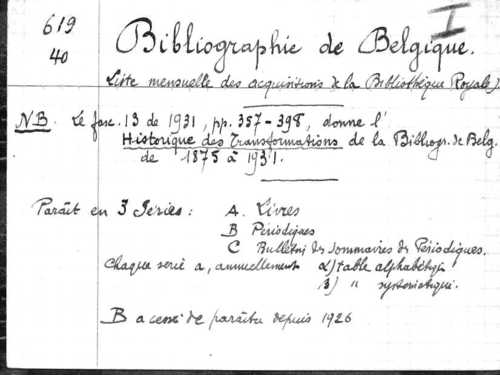 I
619
40
Bibliographie de Belgique.
Liste mensuelle des acquisitions de la Bibliothèque Royale).
NB. Le fasc. 13 de 1931, pp. 357-398, donne l'
Historique des Transformations de la Bibliogr. de Belg.
de 1875 à 1931.
Paraît en 3 Séries : A. Livres
B Périodiques
C Bulletin des Sommaires des Périodiques.
Chaque série a, annuellement α) table alphabétiq.
β) " systématique.
B a cessé de paraître depuis 1926